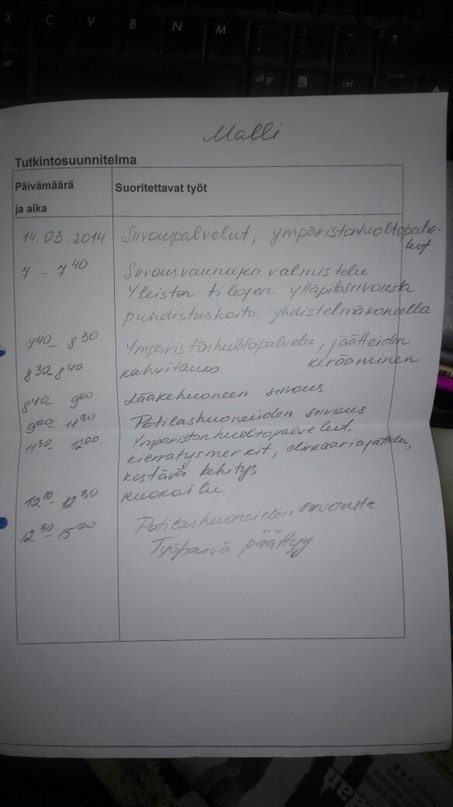 B N M
alt gr
ctrl
Malli
Tutkintosuunnitelma
Päivämäärä
ja aika
Suoritettavat työt
14.03.2014 Siivouspalvelut, ympäristönhuoltopalve-
lut
7 - 7 40 Siivousvaunujen valmistelu
Yleisten tilojen ylläpitosiivousta
puhdistushoito yhdistelmäkoneella
7 40 - 8 30 Ympäristönhuoltopalvelu, jätteiden
kerääminen
8 30 - 8 40 kahvitauko
8 40 900 Lääkehuoneen siivous
900 11 30 Potilashuoneiden siivous
11 30 - 1200 Ympäristönhuoltopalvelut,
kierrätysmerkit, elinkaariajattelu,
kestävä kehitys
12 10 - 12 30 Ruokailu
12 30 - 15 00 Potilashuoneiden siivousta
Työpäivä päättyy